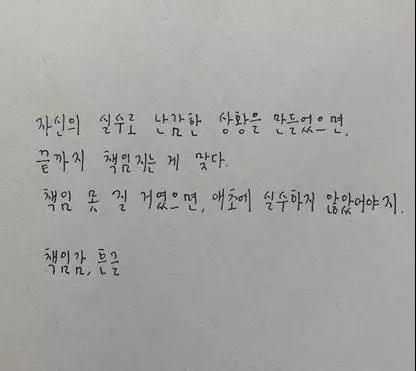 자신의 실수로 난감한 상황을 만들었으면,
끝까지 책임지는 게 맞다.
책임 못 질 거였으면, 애초에 실수하지 않았어야지.
책임감, 흔글